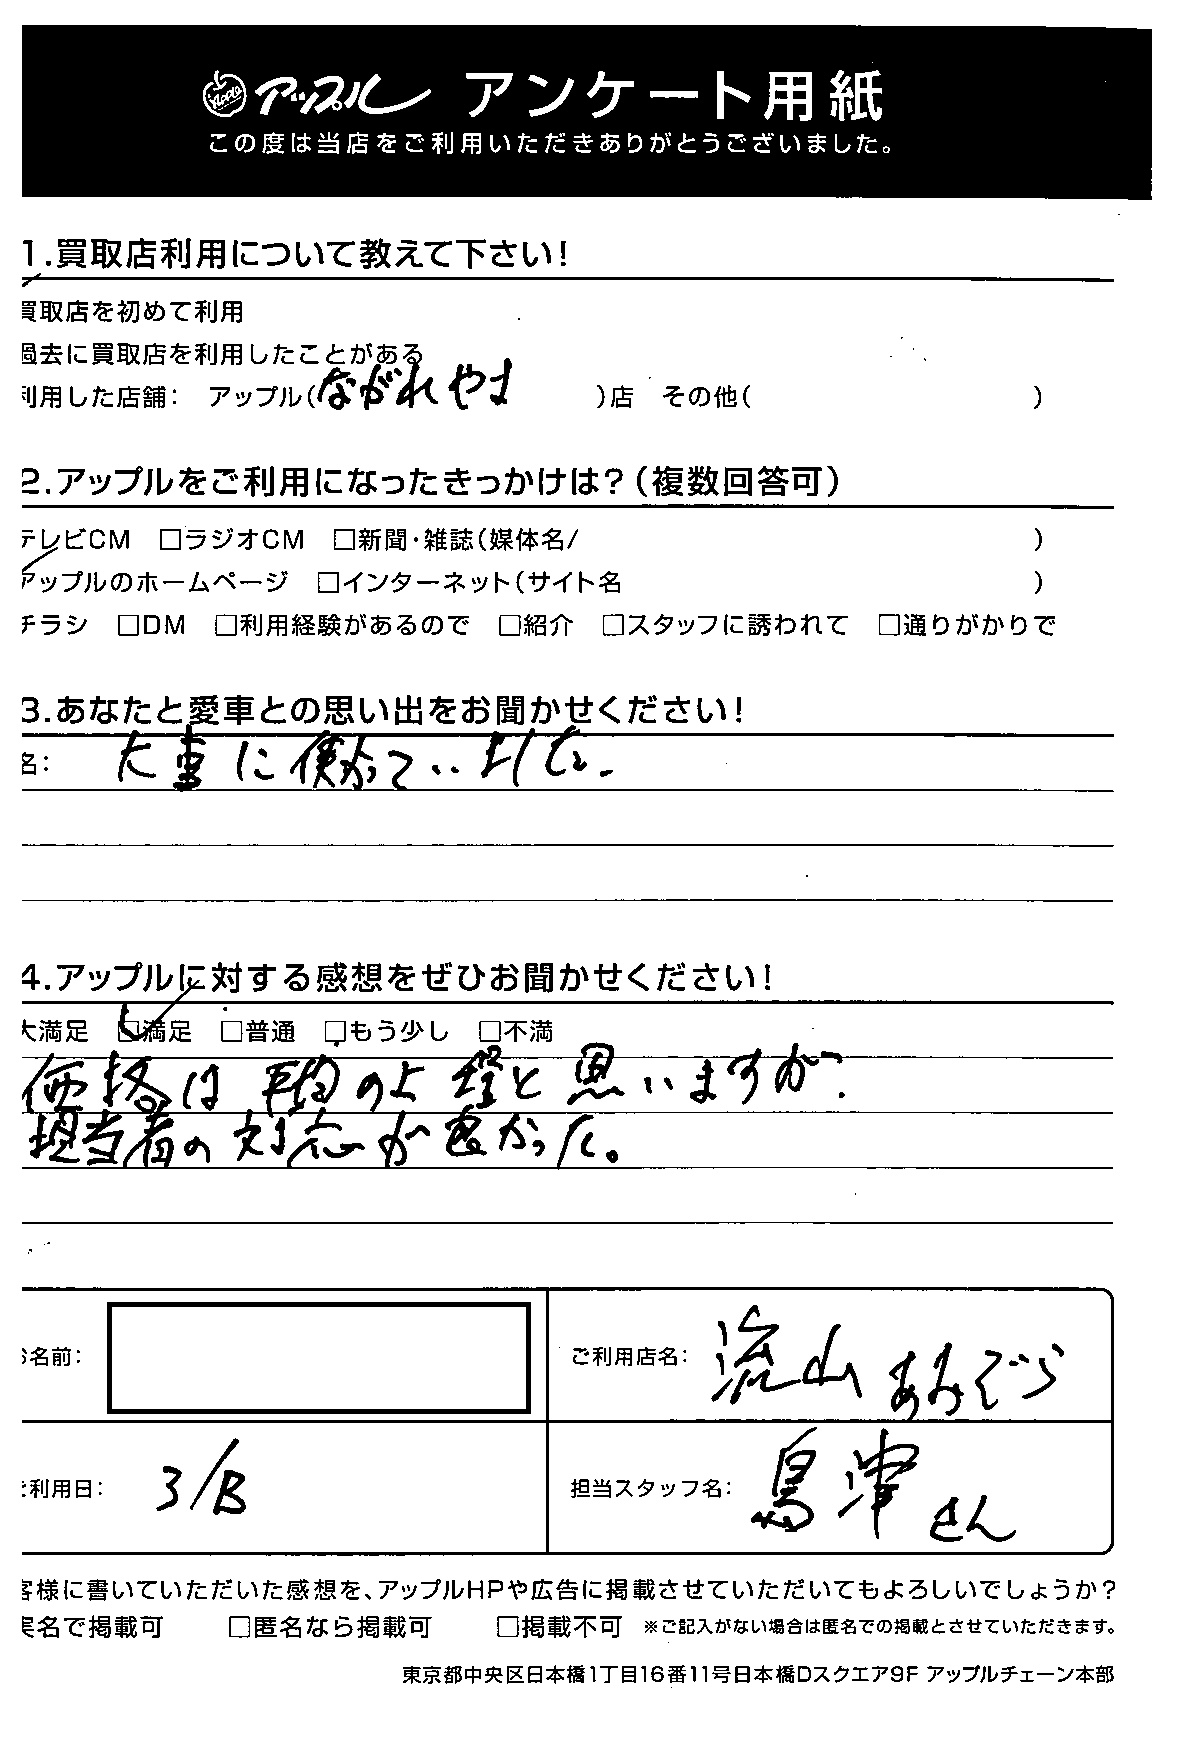 Apple アップル アンケート用紙
この度は当店をご利用いただきありがとうございました。
1.買取店利用について教えて下さい！
買取店を初めて利用
過去に買取店を利用したことがある
利用した店舗： アップル(ながれやま)店 その他( )
2.アップルをご利用になったきっかけは？(複数回答可)
テレビCM □ラジオCM □新聞・雑誌(媒体名/ )
アップルのホームページ □インターネット(サイト名 )
チラシ □DM □利用経験があるので □紹介 □スタッフに誘われて □通りがかりで
3.あなたと愛車との思い出をお聞かせください！
名： 大事に使っていました。
4.アップルに対する感想をぜひお聞かせください！
大満足 □満足 □普通 □もう少し □不満
価格は平均のよ 程と思いますが、
担当者の対応が良かった。
お名前： ご利用店名： 流山おおぞら
ご利用日： 3/13 担当スタッフ名： 島津さん
客様に書いていただいた感想を、アップルHPや広告に掲載させていただいてもよろしいでしょうか？
実名で掲載可 □匿名なら掲載可 □掲載不可 ※ご記入がない場合は匿名での掲載とさせていただきます。
東京都中央区日本橋1丁目16番11号日本橋Dスクエア9F アップルチェーン本部